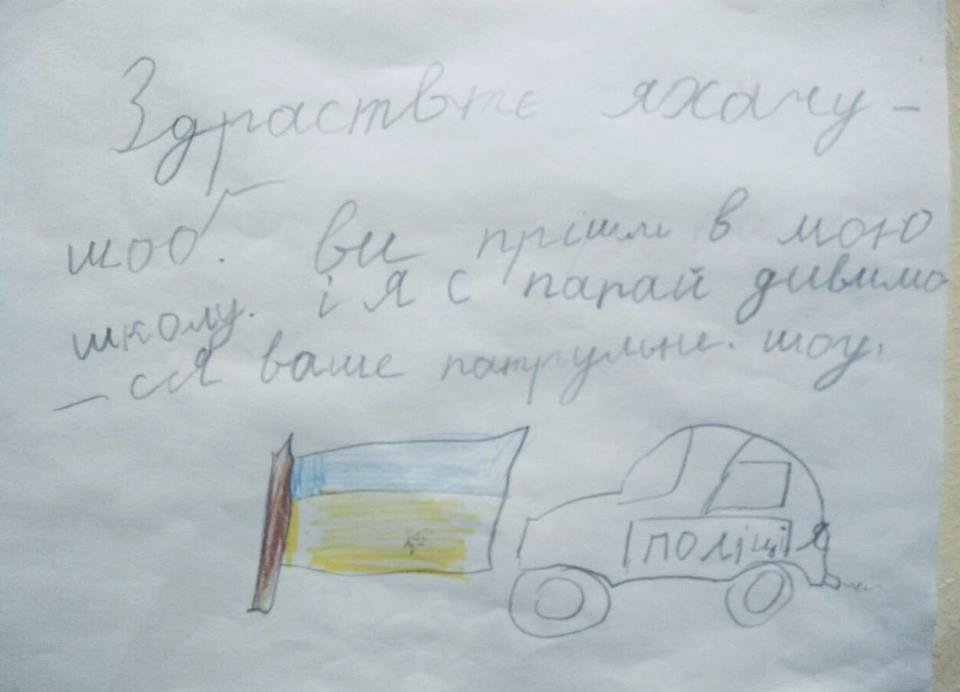 Здраствтє яхачу-
шоб. ви прішли в мою
школу. і я с парай дивимо
- сля ваше патрульне. шоу.
поліція